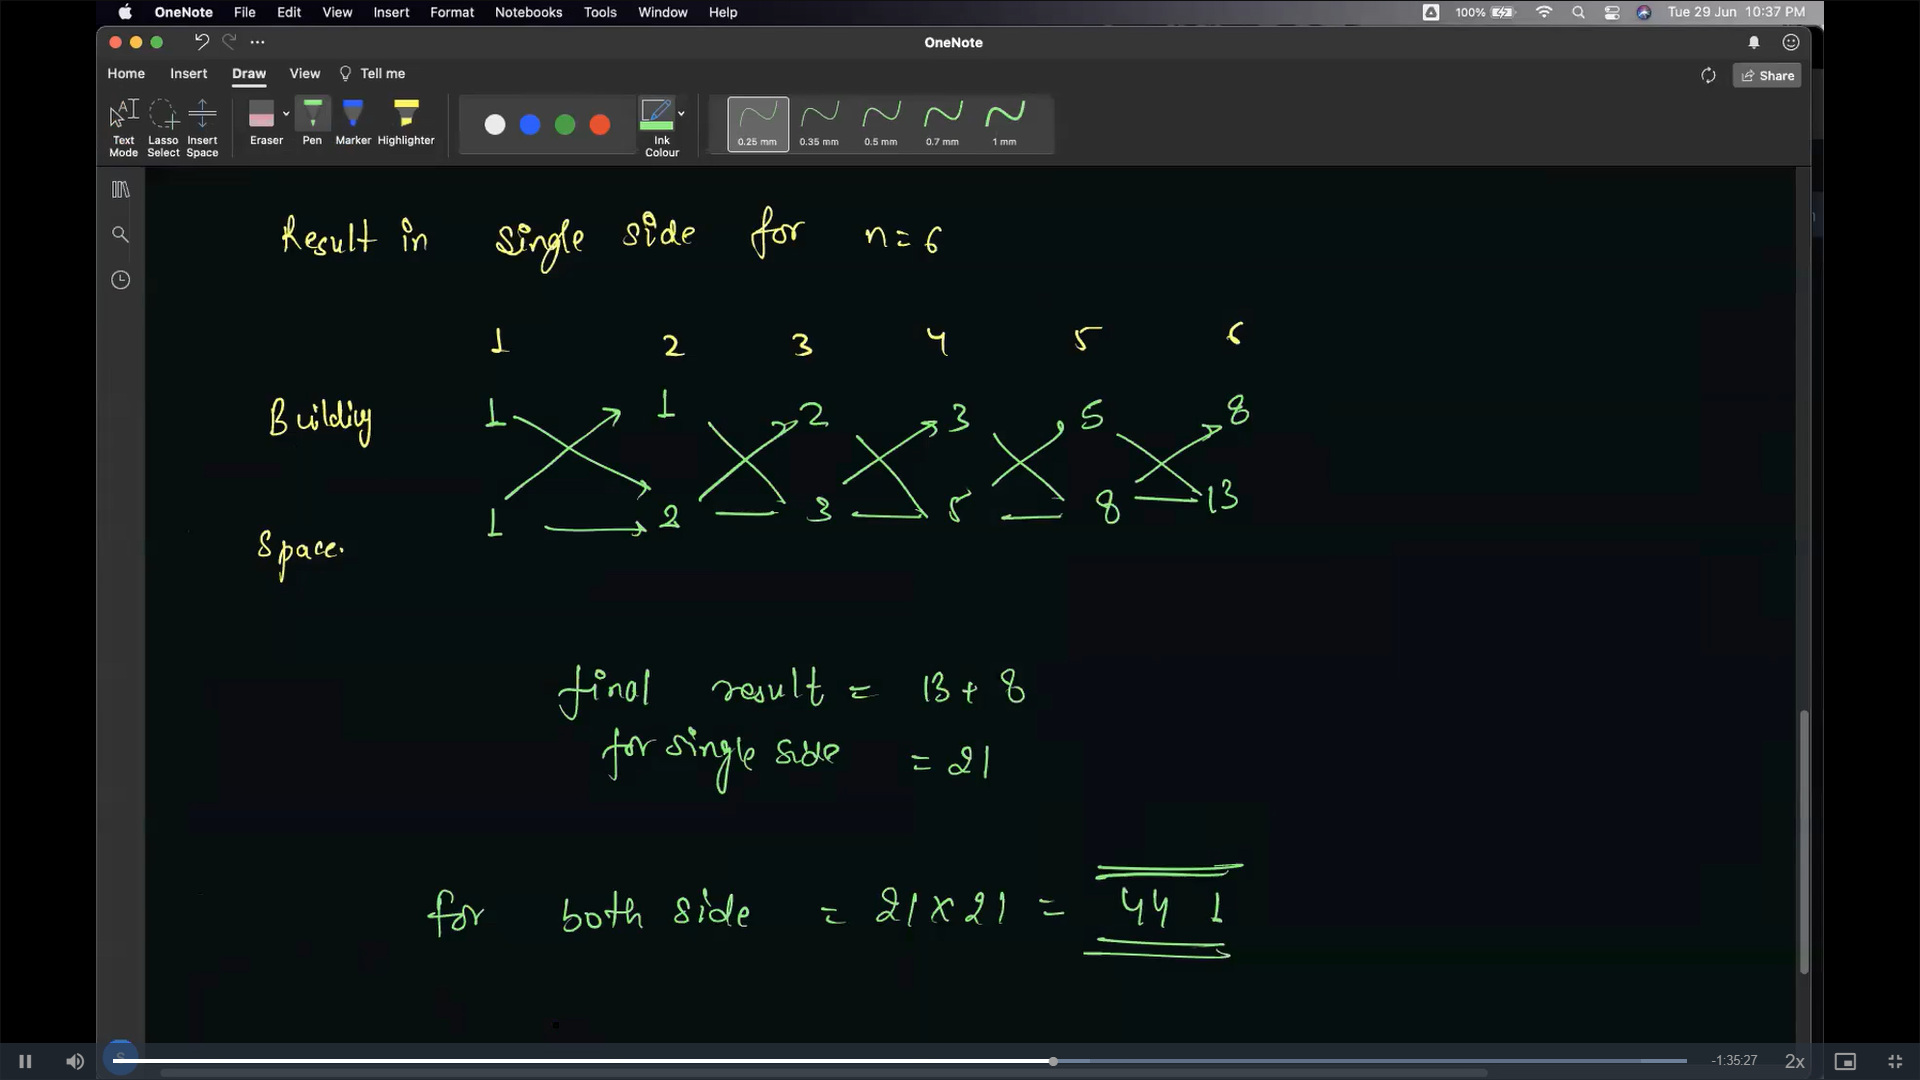 OneNote File Edit View Insert Format Notebooks Tools Window Help 100% Tue 29 Jun 10:37 PM
OneNote
Home Insert Draw View Tell me Share
Text Mode Lasso Select Insert Space Eraser Pen Marker Highlighter Ink Colour 0.25 mm 0.35 mm 0.5 mm 0.7 mm 1 mm
Result in single side for n = 6
1 2 3 4 5 6
Building 1 1 2 3 5 8
Space. 1 2 3 5 8 13
final result = 13 + 8
for single side = 21
for both side = 21 x 21 = 44 1
-1:35:27 2x